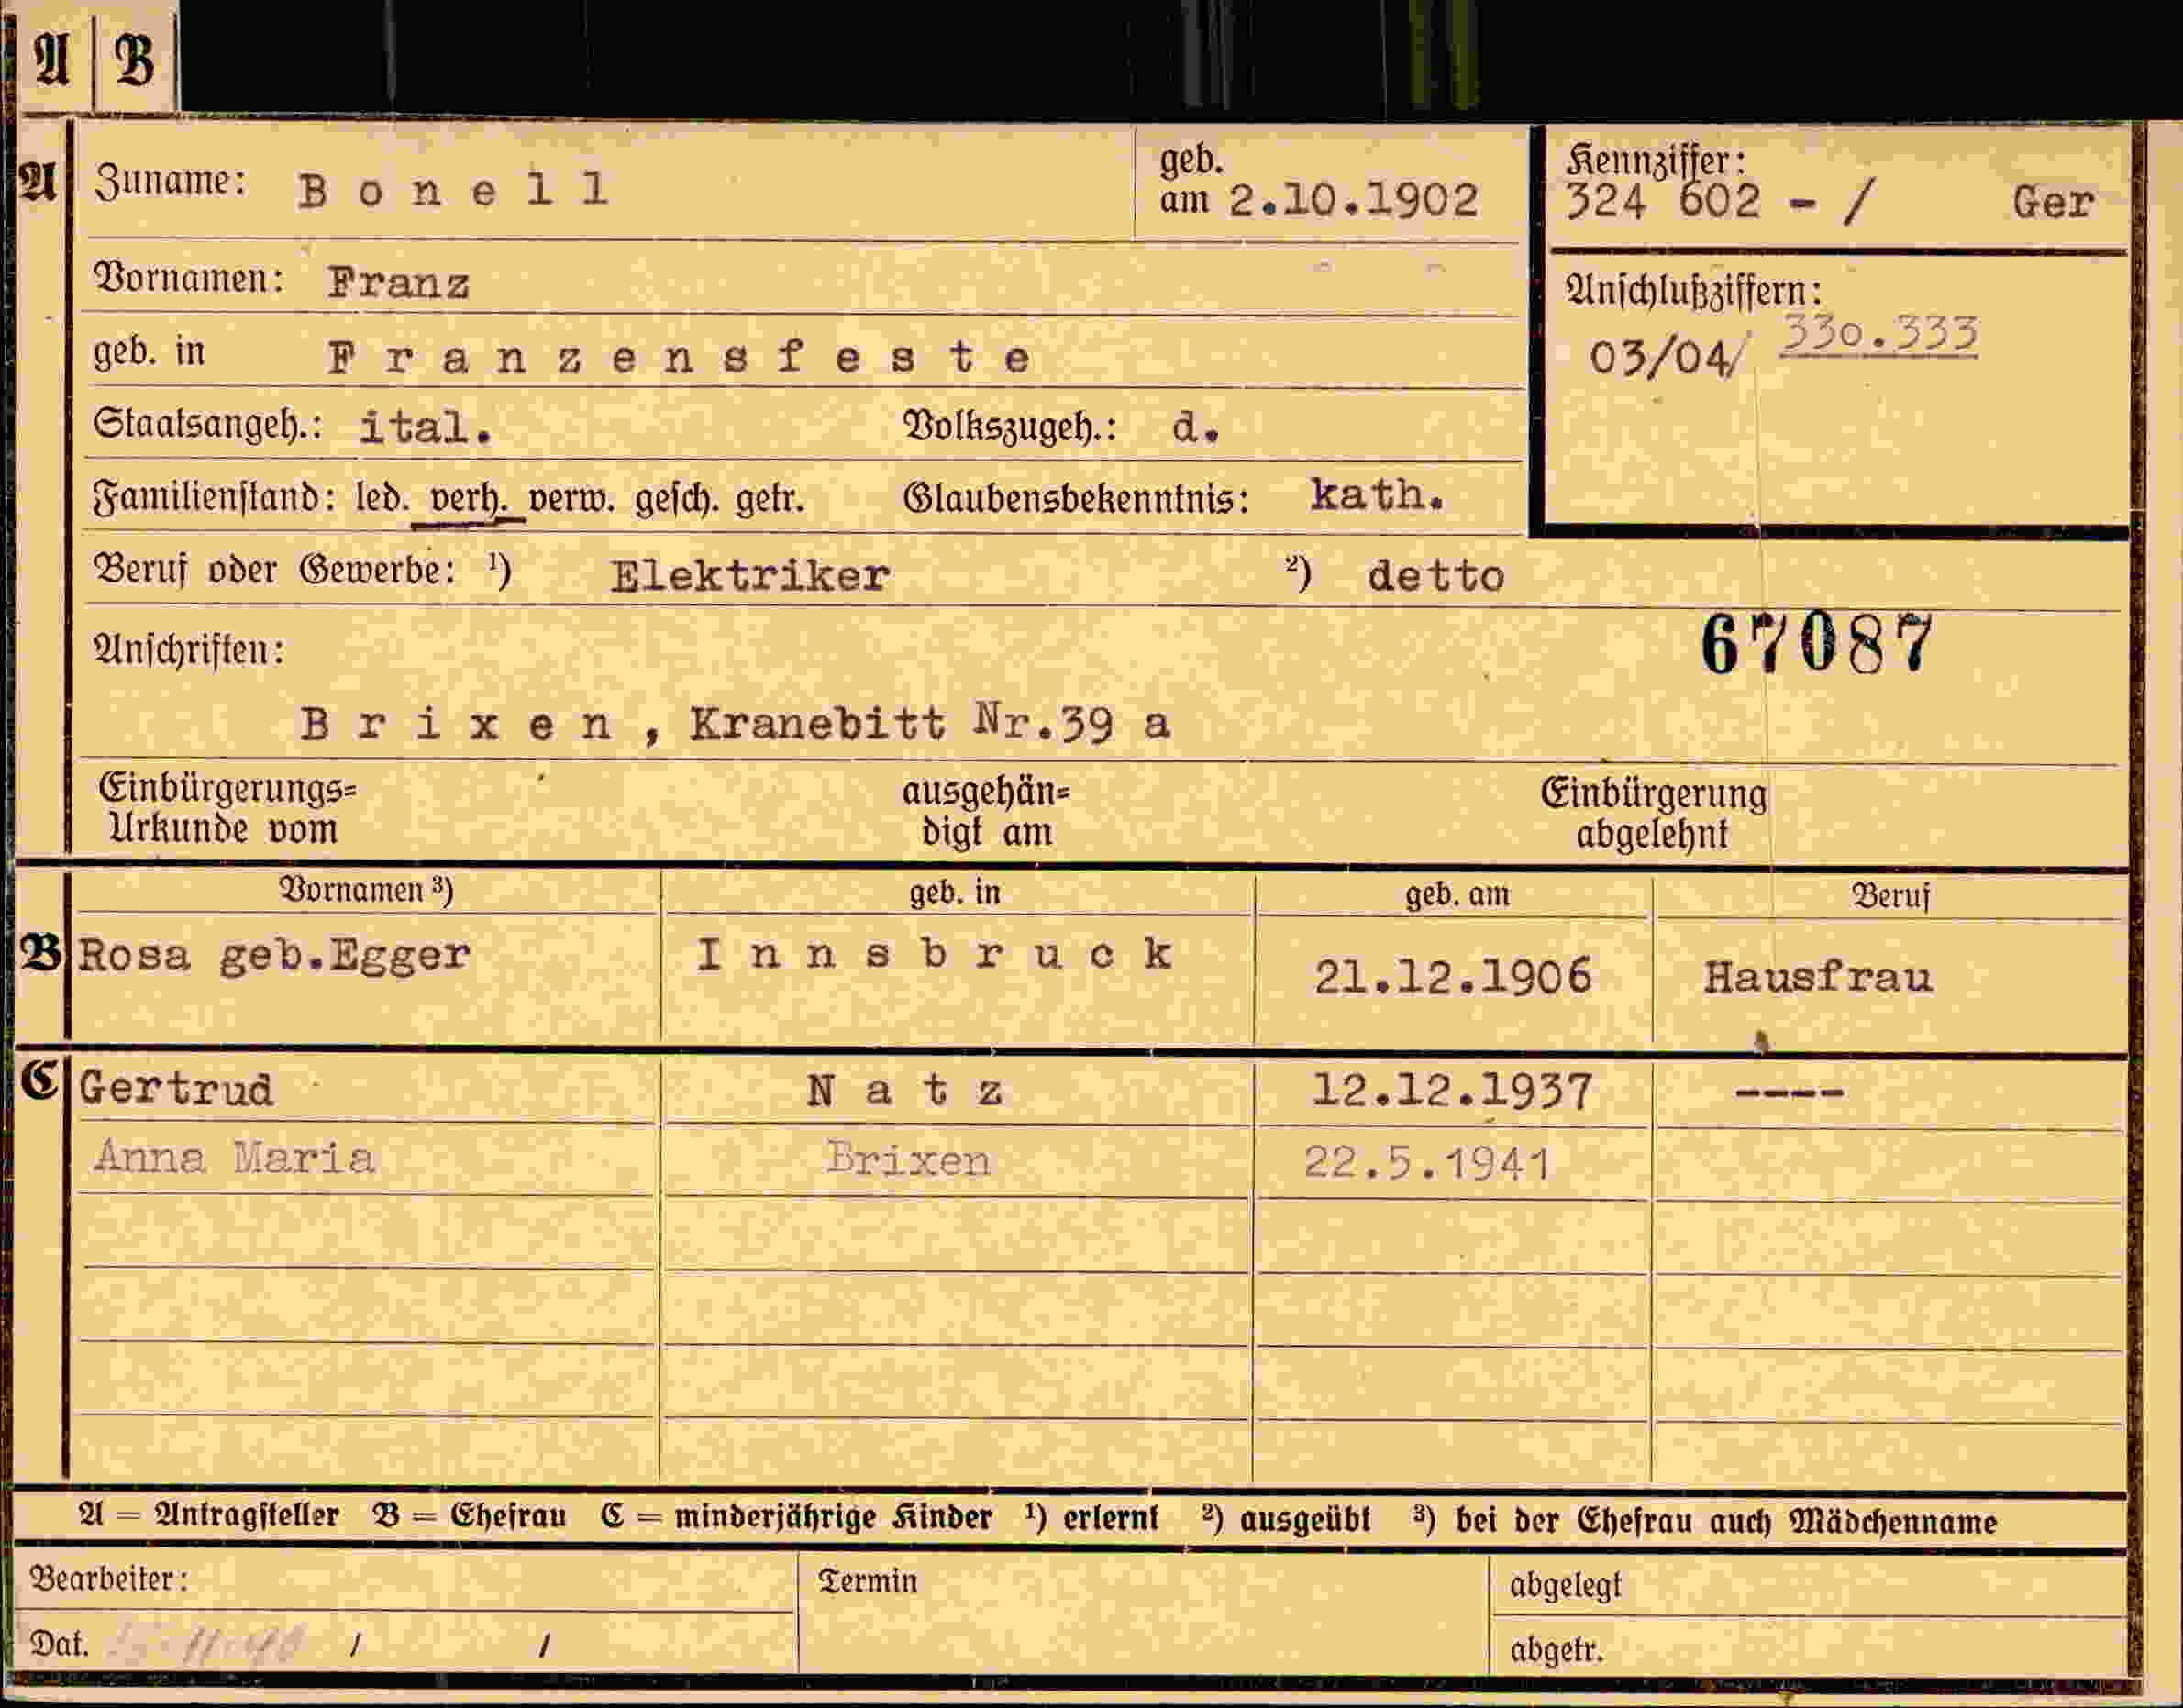 A B
A Zuname: Bonell geb. am 2.10.1902
Kennziffer: 324 602 - / Ger
Vornamen: Franz
Anschlußziffern: 03/04/ 330.333
geb. in Franzensfeste
Staatsangeh.: ital. Volkszugeh.: d.
Familienstand: led. verh. verw. gesch. getr. Glaubensbekenntnis: kath.
Beruf oder Gewerbe: ¹) Elektriker ²) detto
Anschriften: 67087
Brixen, Kranebitt Nr.39 a
Einbürgerungs= ausgehän= Einbürgerung
Urkunde vom digt am abgelehnt
Vornamen ³) geb. in geb. am Beruf
B Rosa geb.Egger Innsbruck 21.12.1906 Hausfrau
C Gertrud Natz 12.12.1937 ----
Anna Maria Brixen 22.5.1941
A = Antragsteller B = Ehefrau C = minderjährige Kinder ¹) erlernt ²) ausgeübt ³) bei der Ehefrau auch Mädchenname
Bearbeiter: Termin abgelegt
Dat. / / abgetr.